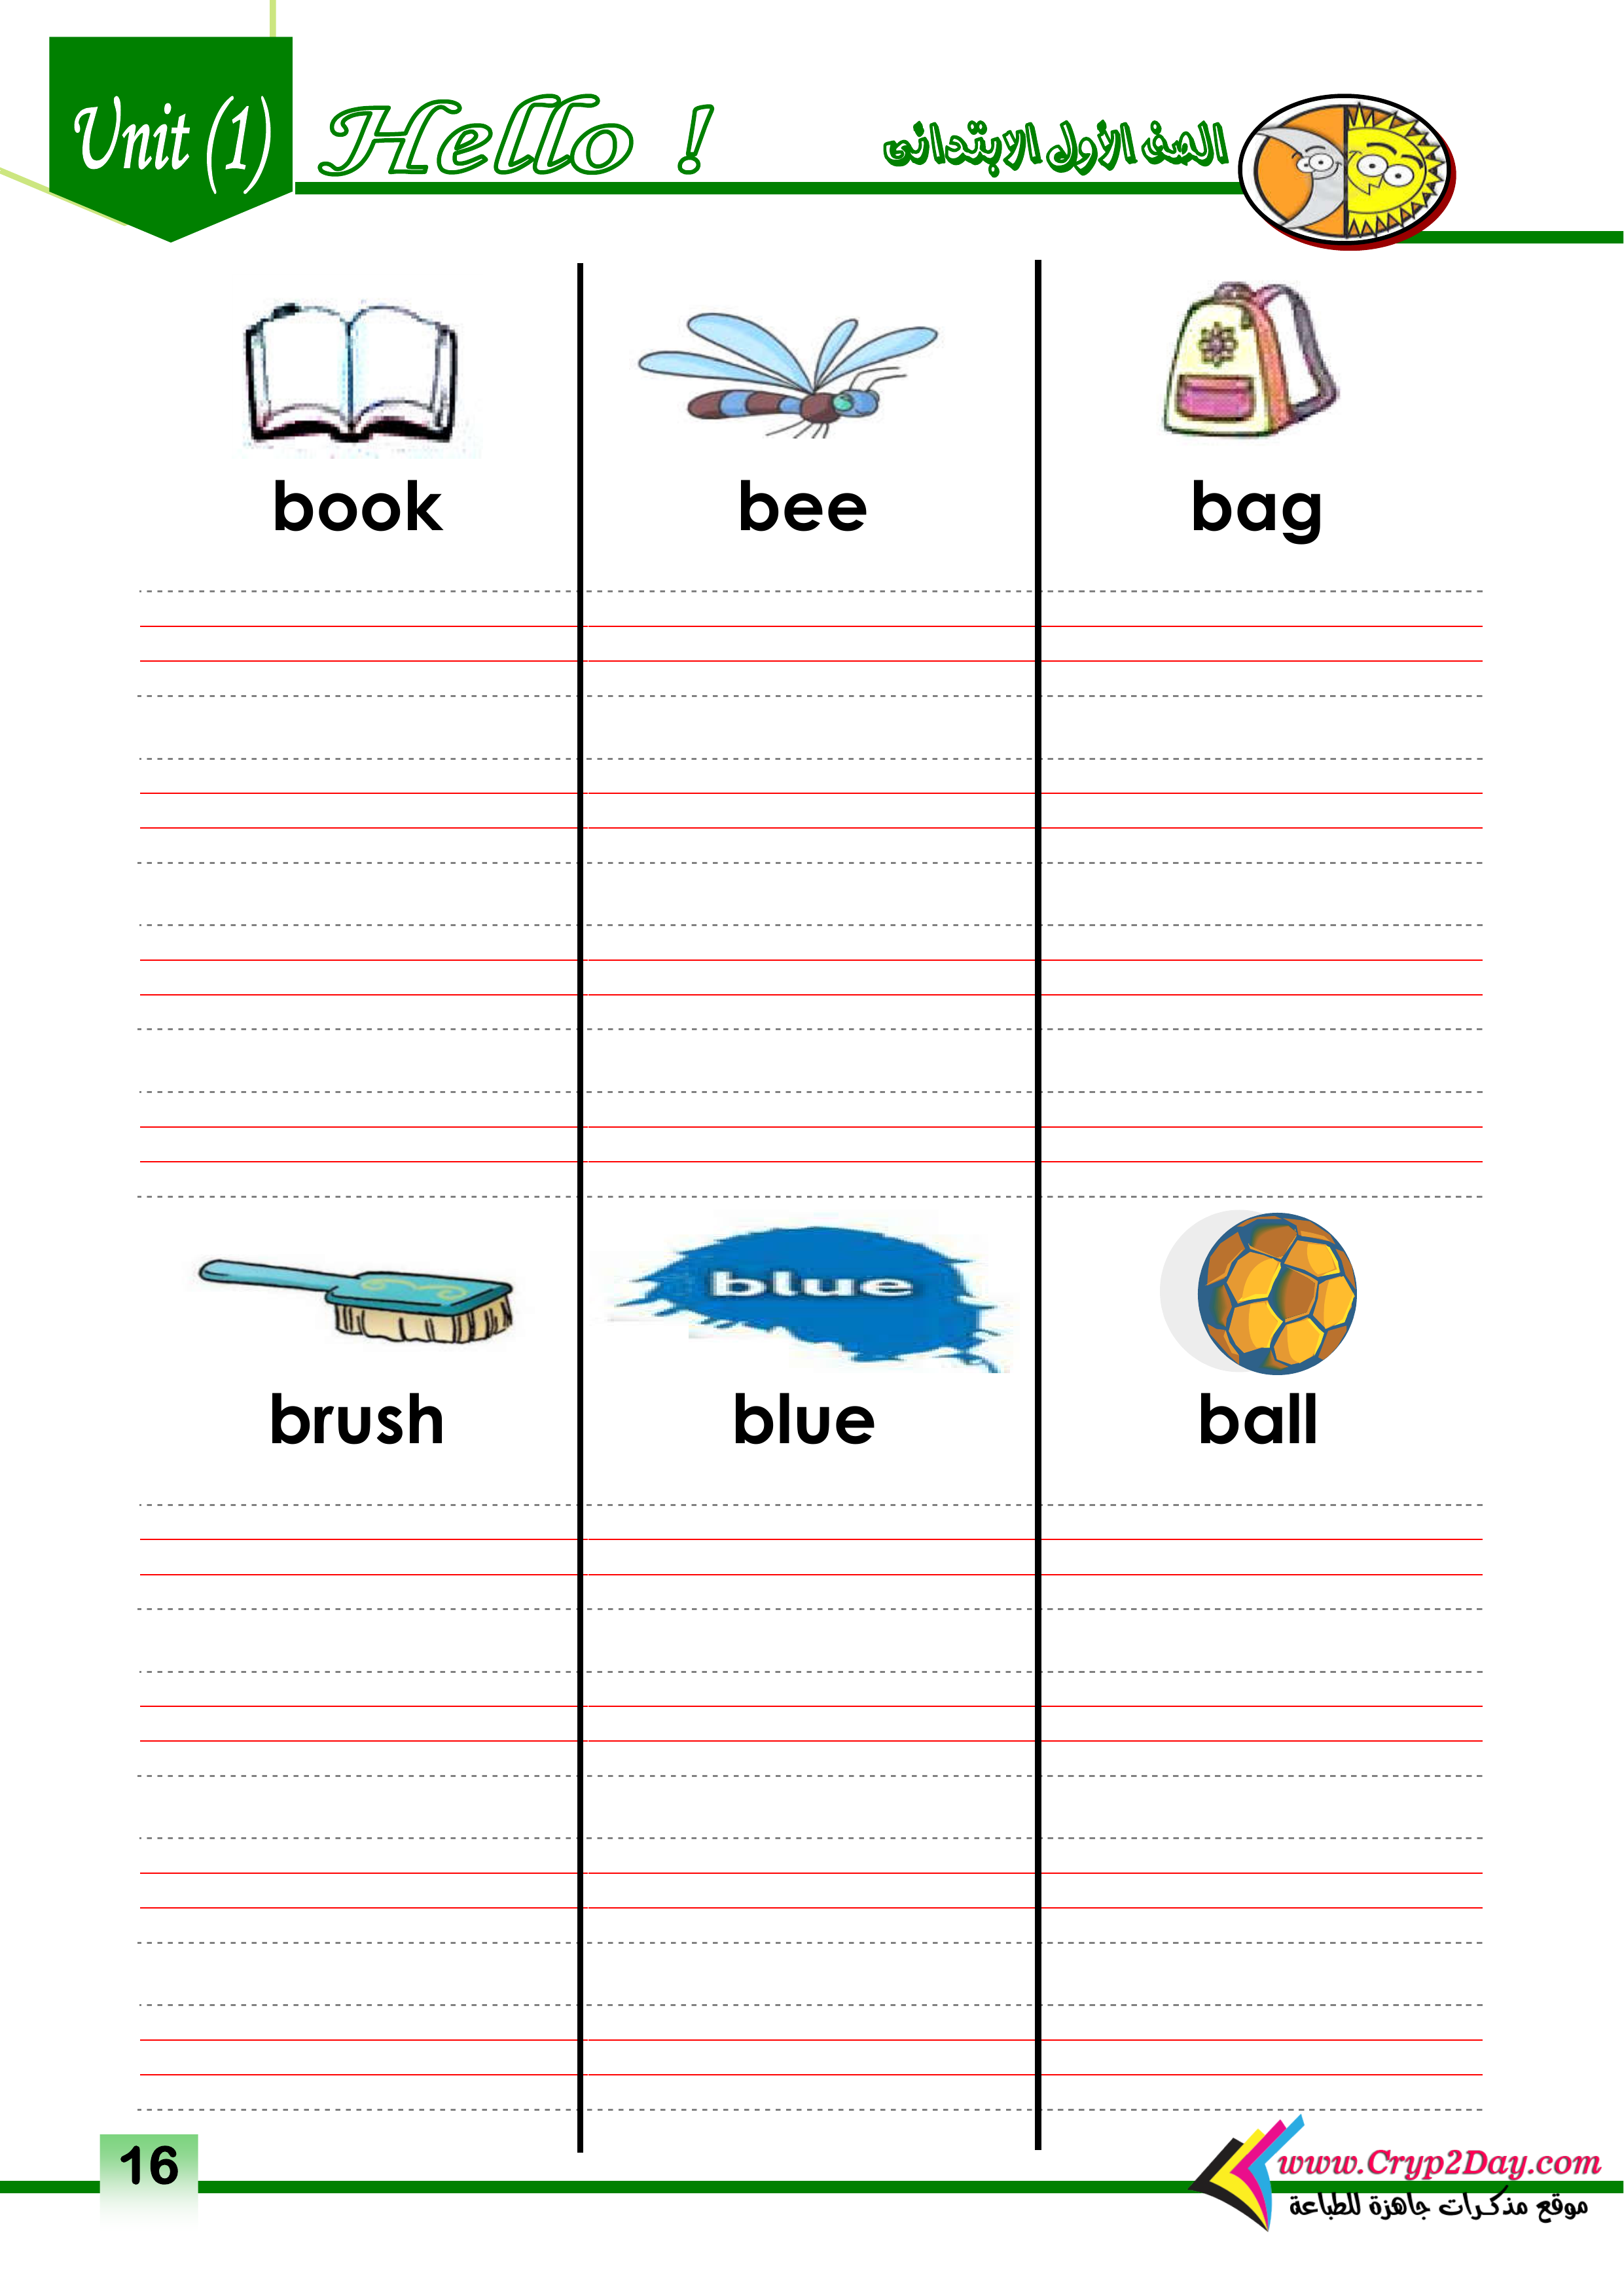 Unit (1)
Hello !
الصف الأول الابتدائى
book
bee
bag
brush
blue
blue
ball
16
www.Cryp2Day.com
موقع مذكرات جاهزة للطباعة